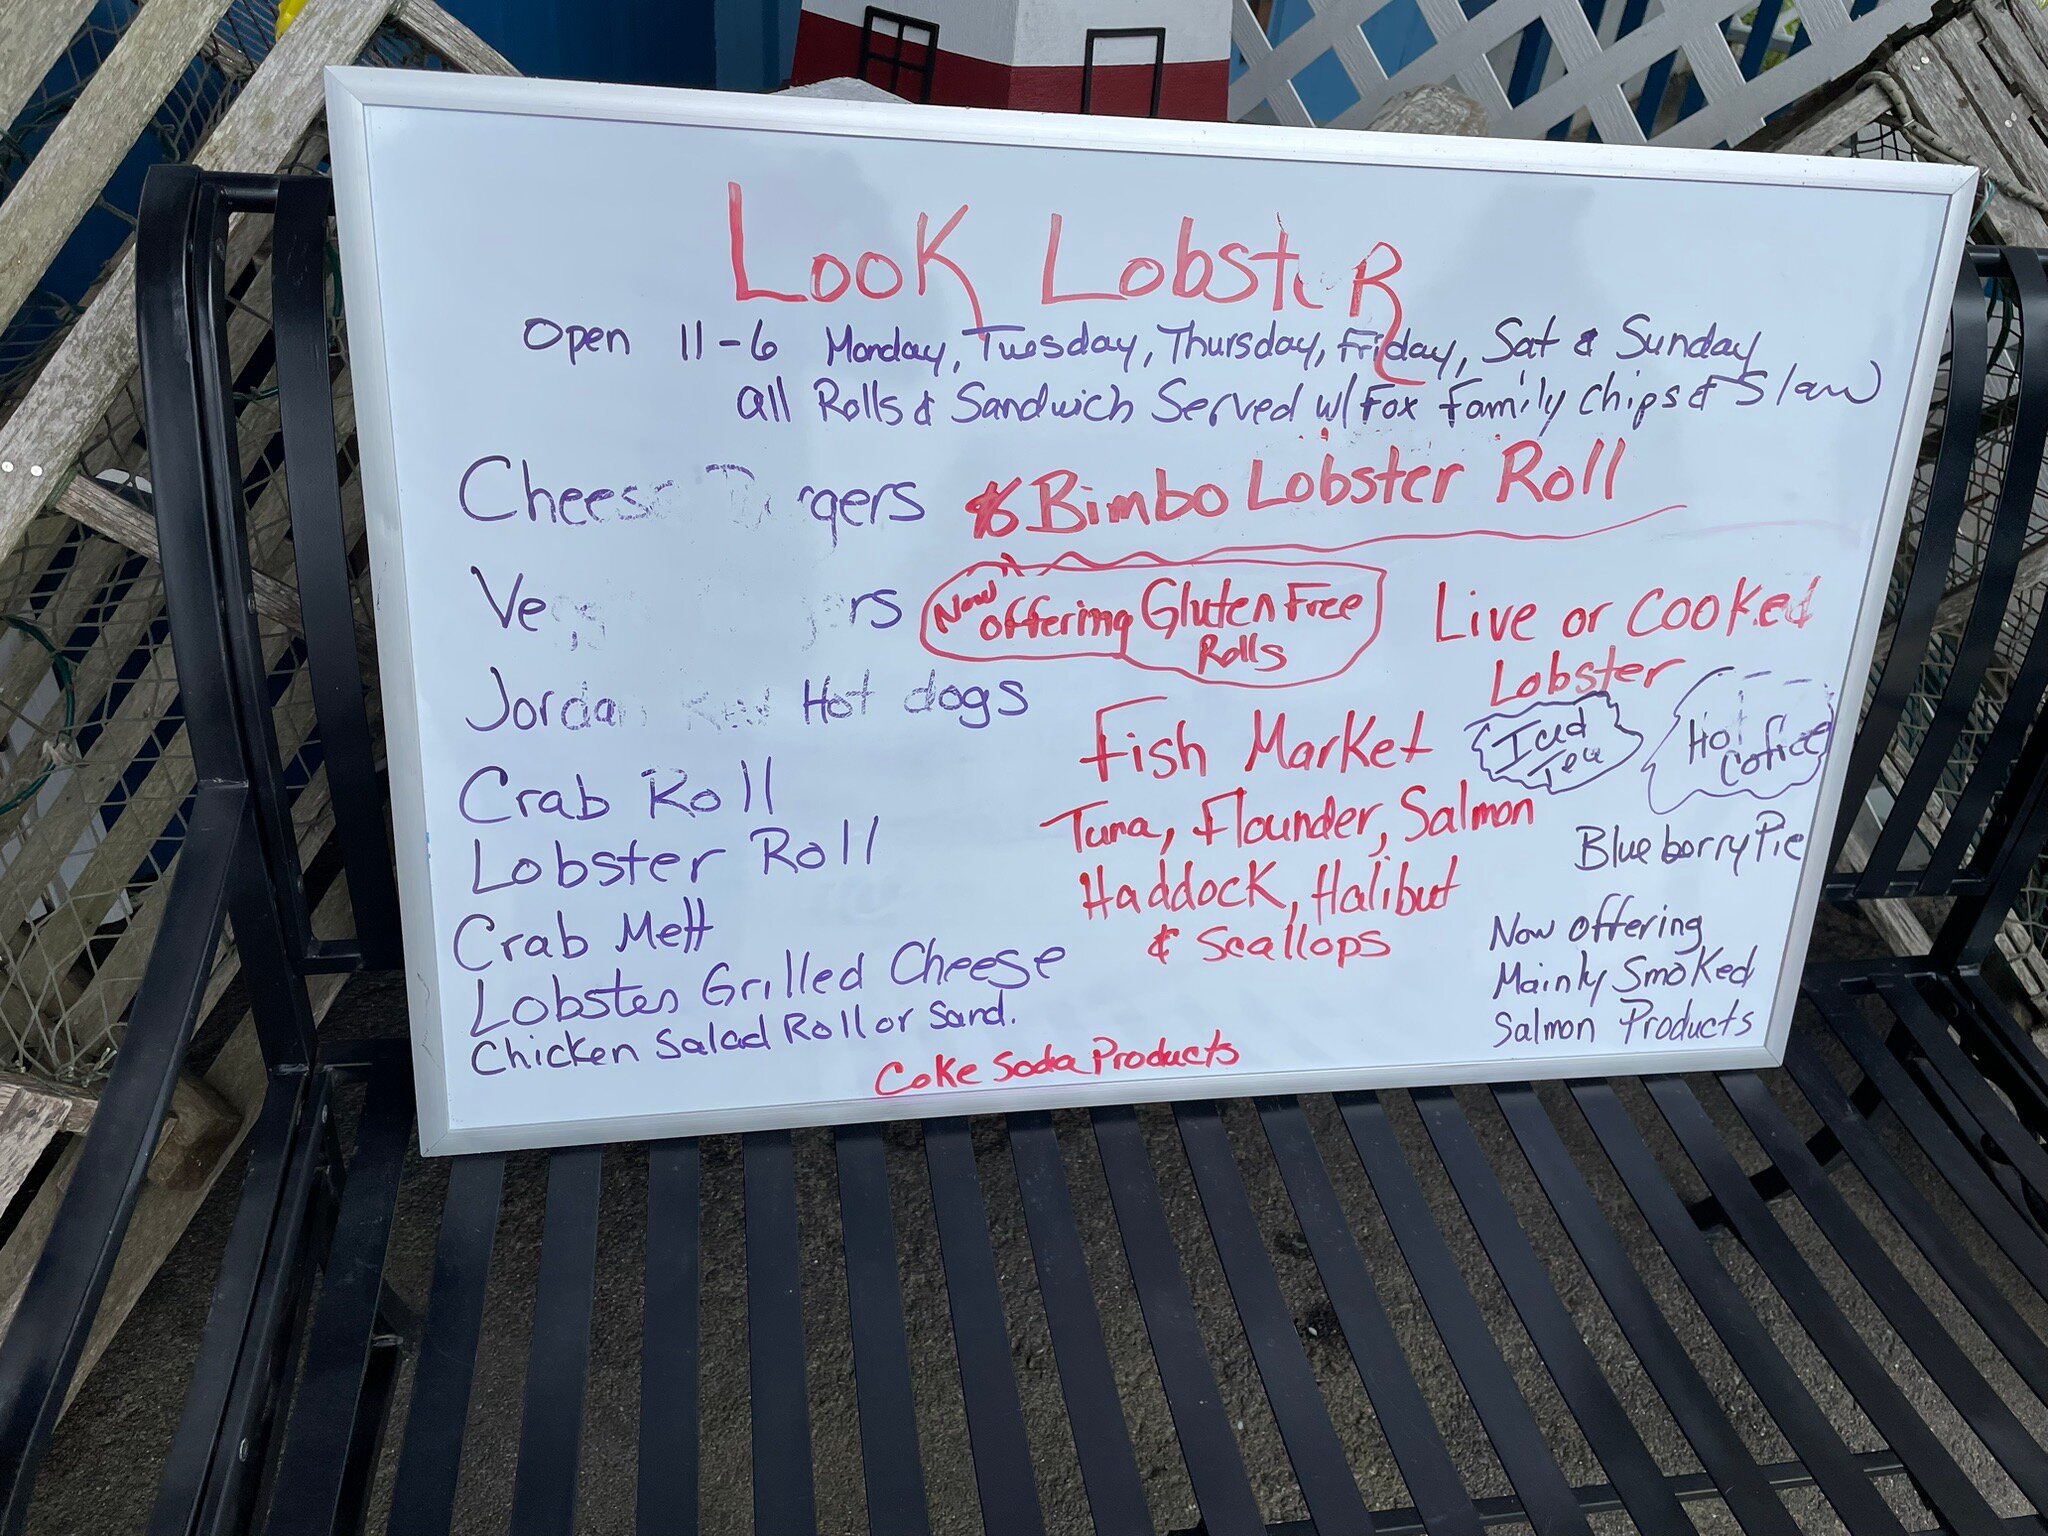 Look Lobster
Open 11-6 Monday, Tuesday, Thursday, Friday, Sat & Sunday
All Rolls & Sandwich Served w/ Fox Family Chips & Slaw
Cheese
Bimbo Lobster Roll
Now offering Gluten Free
Rolls
Live or Cooked
Lobster
Jordan Hot dogs
Crab Roll
Lobster Roll
Crab Melt
Lobster Grilled Cheese
Chicken Salad Roll or Sand.
Fish Market
Tuna, Flounder, Salmon
Haddock, Halibut
& Scallops
Iced
Tea
Hot
Coffee
Blueberry Pie
Now offering
Mainly Smoked
Salmon Products
Coke Soda Products